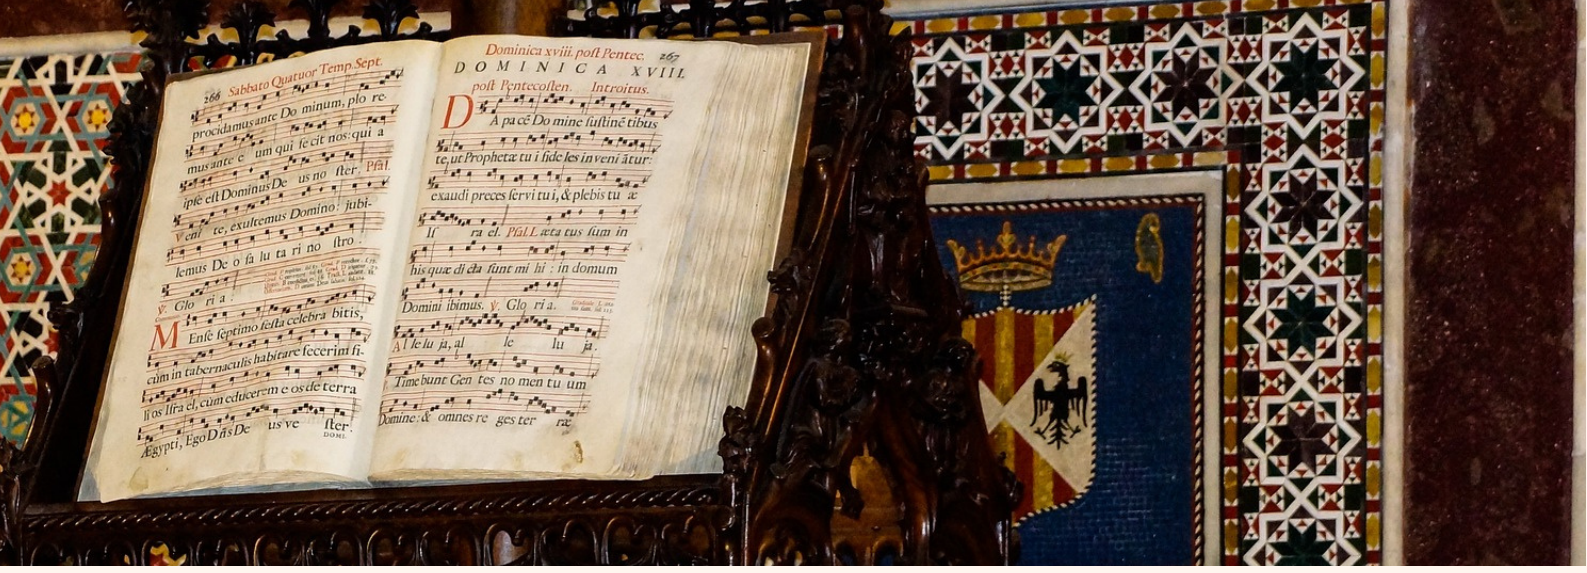 266 Sabbato Quatuor Temp. Sept.
procidamus ante Do minum, plo re-
mus ante e um qui fe cit nos: qui a
ipſe eſt Dominus De us no ſter. Pſal.
Veni te, exultemus Domino: jubi-
lemus De o ſa lu ta ri no ſtro.
℣. Glo ri a.
MEnſe ſeptimo feſta celebra bitis,
cùm in tabernaculis habitare fecerim fi-
li os Iſra el, cum educerem e os de terra
Ægypti, Ego Dñs De us ve ſter.
DOMI-
Dominica xviii. poſt Pentec. 267
DOMINICA XVIII.
poſt Pentecoſten. Introitus.
DA pa cē Do mine ſuſtinē tibus
te, ut Prophetæ tu i fide les in veni ātur:
exaudi preces ſervi tu i, & plebis tu æ
Iſ ra el. Pſal. Læta tus ſum in
his quæ di cta ſunt mi hi : in domum
Domini ibimus. ℣. Glo ri a.
Al le lu ja, al le lu ja.
Timebunt Gen tes no men tu um
Domine: & omnes re ges ter ræ